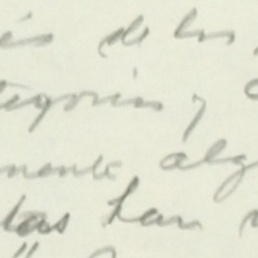 és de los
tegorías y
mente alg
das han